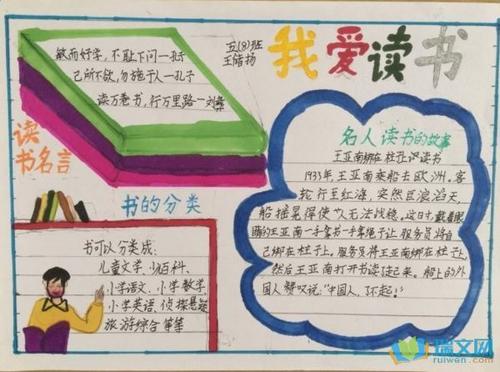 我爱读书
五(8)班
敏而好学，不耻下问一孔子
己所不欲，勿施于人一孔子
读万卷书，行万里路一刘彝
读
书名言
书的分类
书可以分类成：
儿童文学、少儿百科、
小学语文、小学数学
小学英语、侦探悬疑
旅游综合 等等
名人读书的故事
王亚南绑在柱子上读书
1933年，王亚南乘船去欧洲。客
轮行至红海，突然巨浪滔天，
船摇晃得使人无法站稳。这时，戴着眼
镜的王亚南一手拿书一手
服务员将自
己绑在柱子上。服务员将王亚南绑在柱子上，
然后王亚南打开书读起来。船上的外
国人赞叹说："中国人，了不起！"
瑞文网
ruiwen.com